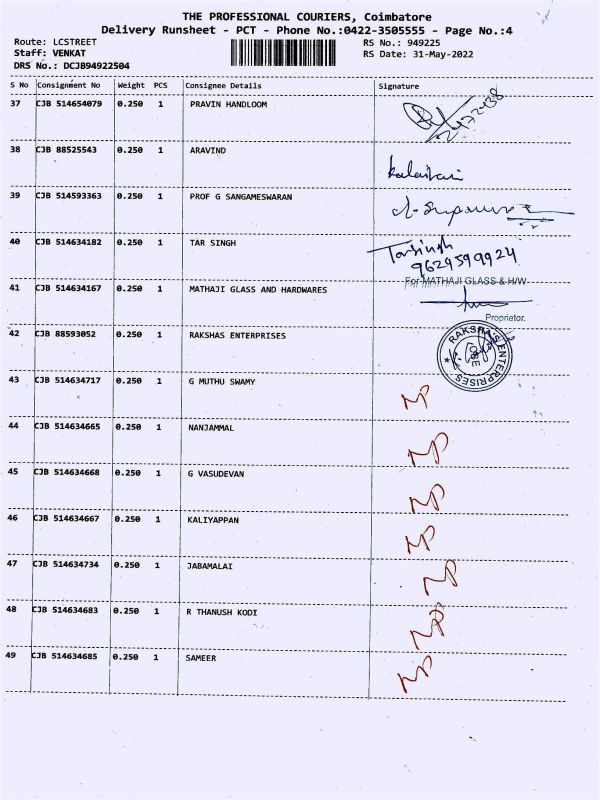 THE PROFESSIONAL COURIERS, Coimbatore
Delivery Runsheet - PCT - Phone No.:0422-3505555 - Page No.:4
Route: LCSTREET
RS No.: 949225
Staff: VENKAT
RS Date: 31-May-2022
DRS No.: DCJB94922504
S No Consignment No Weight PCS Consignee Details Signature
37 CJB 514654079 0.250 1 PRAVIN HANDLOOM
38 CJB 88525543 0.250 1 ARAVIND
39 CJB 514593363 0.250 1 PROF G SANGAMESWARAN
40 CJB 514634182 0.250 1 TAR SINGH Tarsingh
9629599924
For MATHAJI GLASS & H/W
41 CJB 514634167 0.250 1 MATHAJI GLASS AND HARDWARES
Proprietor.
42 CJB 88593052 0.250 1 RAKSHAS ENTERPRISES RAKSHAS ENTERPRISES
43 CJB 514634717 0.250 1 G MUTHU SWAMY NP
44 CJB 514634665 0.250 1 NANJAMMAL NP
45 CJB 514634668 0.250 1 G VASUDEVAN NP
46 CJB 514634667 0.250 1 KALIYAPPAN NP
47 CJB 514634734 0.250 1 JABAMALAI NP
48 CJB 514634683 0.250 1 R THANUSH KODI NP
49 CJB 514634685 0.250 1 SAMEER NP